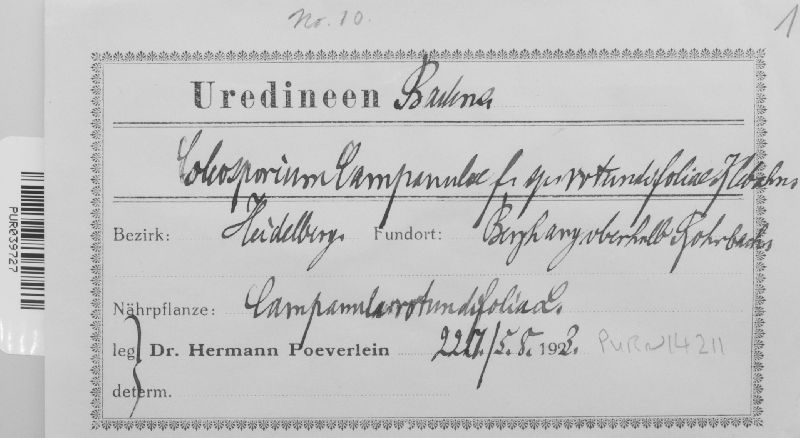 No. 10.
1
Uredineen Badens.
Coleosporium Campanulae f. sp. rotundifoliae Klebahn.
Bezirk: Heidelberg. Fundort: Berghang oberhalb Rohrbachs
Nährpflanze: Campanula rotundifolia L.
leg. Dr. Hermann Poeverlein 22.7./5.8. 1923. PURN14211
determ.
PUR039727